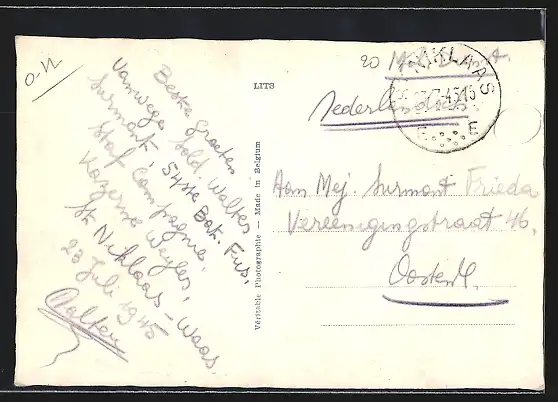 O-V
Beste groeten
Vanwege Sold. Walter
Surmont, 54ste Bat. Fus.
Staf Compagnie,
Kazerne Weyler,
St. Niklaas-Waas.
23 Juli 1945
Walter
LITS
Véritable Photographie — Made in Belgium
20
NIKLAAS
7-45 15
E
Nederlandsch.
Aan Mej. Surmont Frieda
Vereenigingstraat 46.
Oostende.